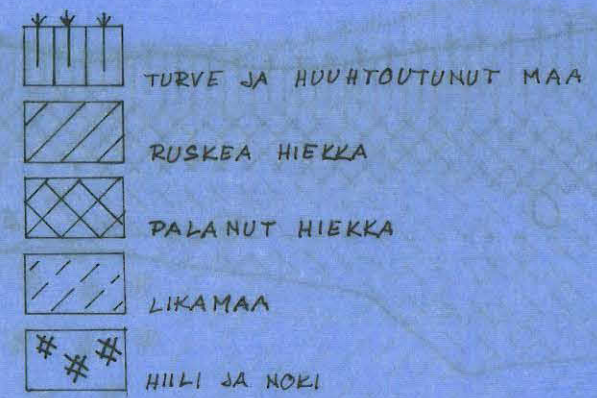 TURVE JA HUUHTOUTUNUT MAA
RUSKEA HIEKKA
PALANUT HIEKKA
LIKAMAA
HIILI JA NOKI